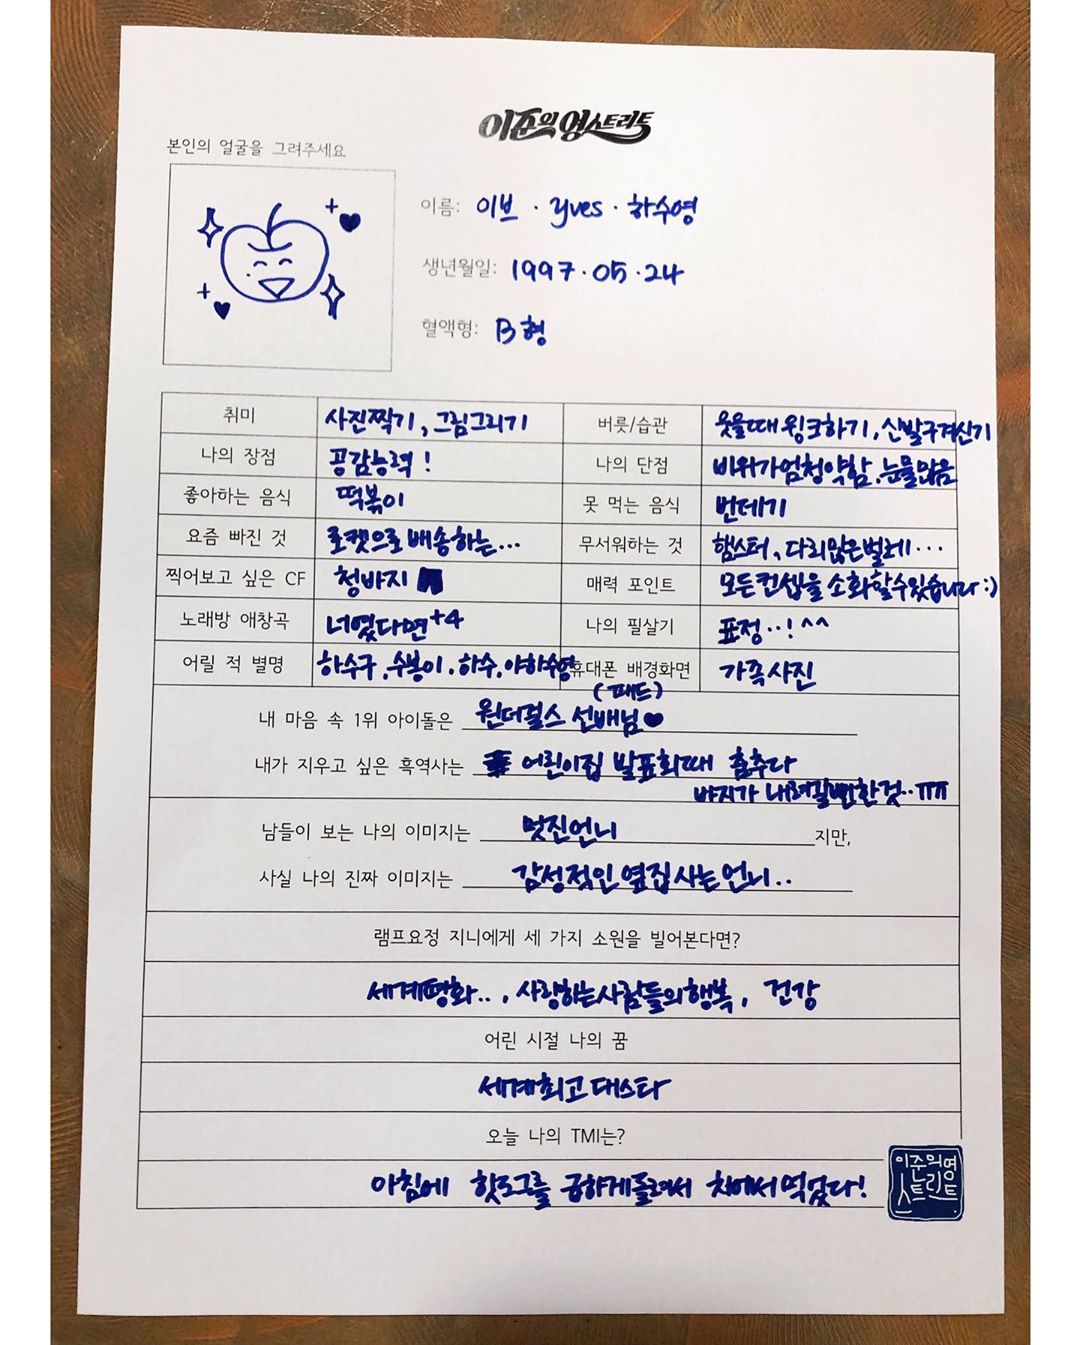 이준의 영스트리트
본인의 얼굴을 그려주세요
이름: 이브 · yves · 하수영
생년월일: 1997 · 05 · 24
혈액형: B형
취미 사진찍기, 그림그리기 버릇/습관 웃을때 윙크하기, 신발구겨신기
나의 장점 공감능력! 나의 단점 비위가엄청약함, 눈물많음
좋아하는 음식 떡볶이 못 먹는 음식 번데기
요즘 빠진 것 로켓으로 배송하는... 무서워하는 것 햄스터, 다리많은벌레...
찍어보고 싶은 CF 청바지 매력 포인트 모든컨셉을 소화할수있습니다 :)
노래방 애창곡 너였다면+4 나의 필살기 표정..!^^
어릴 적 별명 하수구, 수봉이, 하수, 야하수영 휴대폰 배경화면 가족사진
(패드)
내 마음 속 1위 아이돌은 원더걸스 선배님♥
내가 지우고 싶은 흑역사는 어린이집 발표회때 춤추다
바지가 내려갈뻔한것..ㅠㅠ
남들이 보는 나의 이미지는 멋진언니 지만,
사실 나의 진짜 이미지는 감성적인옆집사는언니..
램프요정 지니에게 세 가지 소원을 빌어본다면?
세계평화.., 사랑하는사람들의행복, 건강
어린 시절 나의 꿈
세계최고대스타
오늘 나의 TMI는?
아침에 핫도그를 급하게들려서 차에서먹었다!
이준의영
스트리트